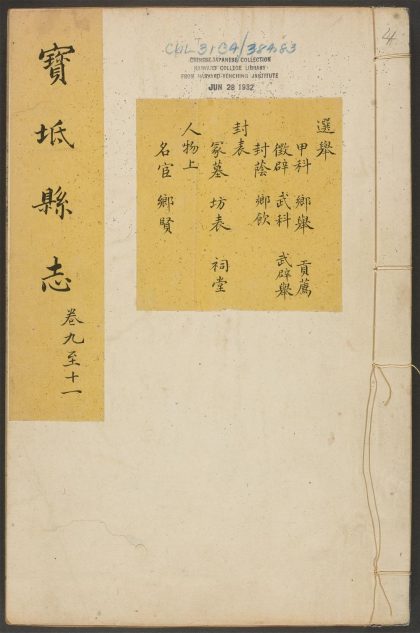 寶坻縣志
卷九至十一
CHINESE-JAPANESE COLLECTION
HARVARD COLLEGE LIBRARY
FROM HARVARD-YENCHING INSTITUTE
JUN 28 1932
4
選舉
甲科 鄉舉 貢薦
徵辟 武科 武辟舉
封蔭 鄉飲
封表
冢墓 坊表 祠堂
人物上
名宦 鄉賢